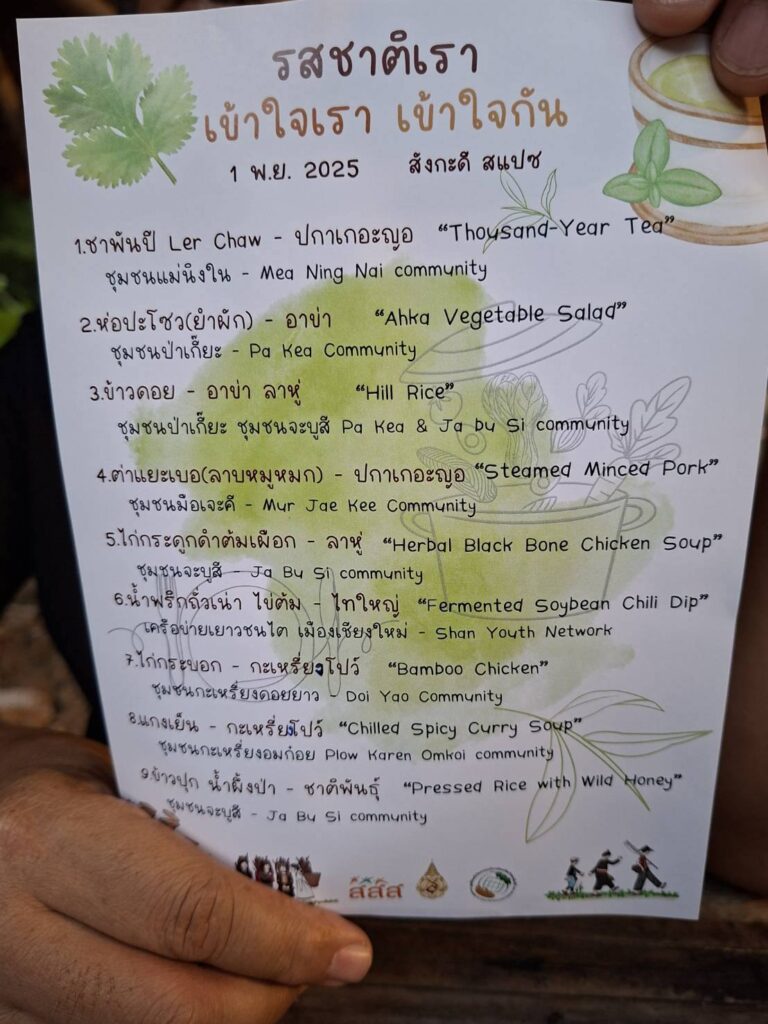 รสชาติเรา
เข้าใจเรา เข้าใจกัน
1 พ.ย. 2025 สังกะดี สแปซ
1.ชาพันปี Ler Chaw - ปกาเกอะญอ “Thousand-Year Tea”
ชุมชนแม่นิงใน - Mea Ning Nai community
2.ห่อปะโซว(ยำผัก) - อาข่า “Ahka Vegetable Salad”
ชุมชนป่าเกี๊ยะ - Pa Kea Community
3.ข้าวดอย - อาข่า ลาหู่ “Hill Rice”
ชุมชนป่าเกี๊ยะ ชุมชนจะบูสี Pa Kea & Ja bu Si community
4.ต่าแยะเบอ(ลาบหมูหมก) - ปกาเกอะญอ “Steamed Minced Pork”
ชุมชนมือเจะคี - Mur Jae Kee Community
5.ไก่กระดูกดำต้มเผือก - ลาหู่ “Herbal Black Bone Chicken Soup”
ชุมชนจะบูสี - Ja Bu Si community
6.น้ำพริกถั่วเน่า ไข่ต้ม - ไทใหญ่ “Fermented Soybean Chili Dip”
เครือข่ายเยาวชนไต เมืองเชียงใหม่ - Shan Youth Network
7.ไก่กระบอก - กะเหรี่ยงโปว์ “Bamboo Chicken”
ชุมชนกะเหรี่ยงดอยยาว - Doi Yao Community
8.แกงเย็น - กะเหรี่ยงโปว์ “Chilled Spicy Curry Soup”
ชุมชนกะเหรี่ยงอมก๋อย Plow Karen Omkoi community
9.ข้าวปุก น้ำผึ้งป่า - ชาติพันธุ์ “Pressed Rice with Wild Honey”
ชุมชนจะบูสี - Ja Bu Si community
สสส